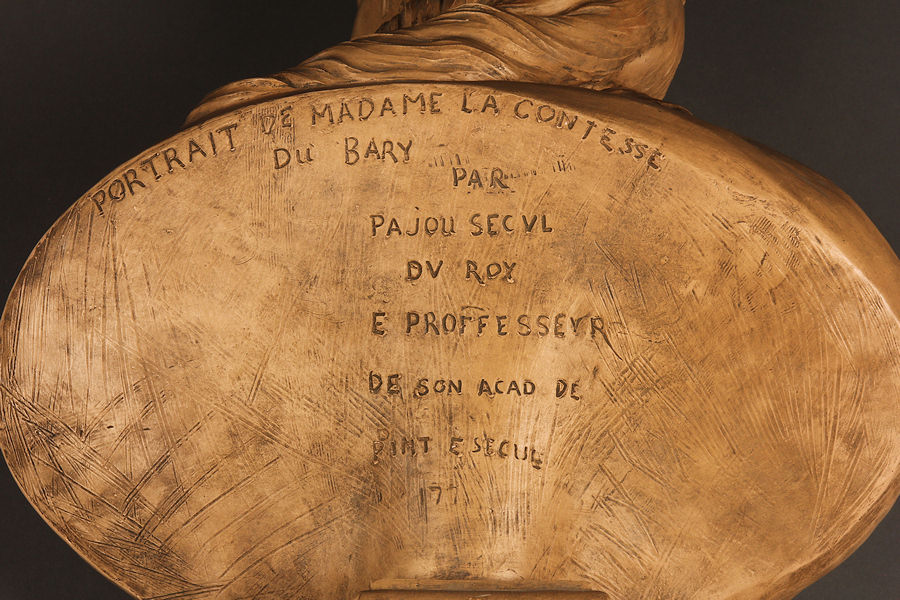 PORTRAIT DE MADAME LA CONTESSE
DU BARY
PAR
PAJOU SECVL
DV ROY
E PROFFESSEVR
DE SON ACAD DE
PINT E SECUL
177